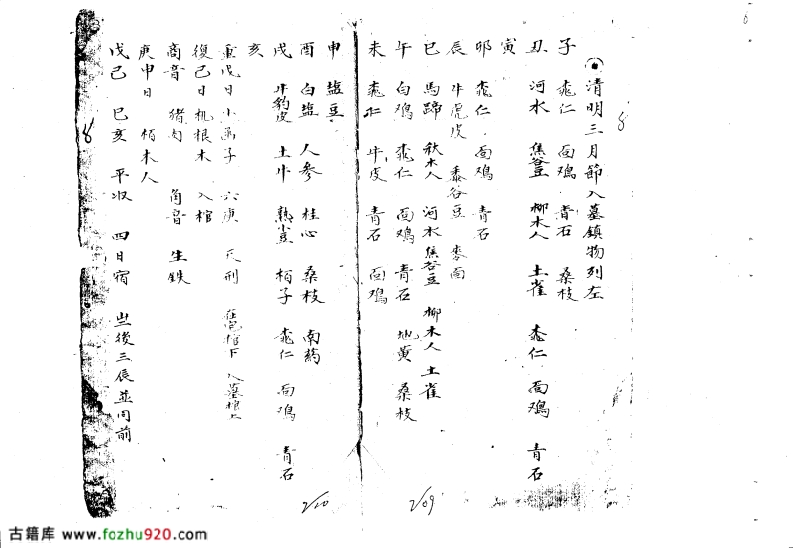 清明三月節入墓鎮物列左
子 桃仁 面鸡 青石 桑枝
丑 河水 焦谷豆 柳木人 土雀 桃仁 面鸡 青石
寅
卯 桃仁 面鸡 青石
辰 牛虎皮 黍谷豆 麥面
巳 馬蹄 秋木人 河水 焦谷豆 柳木人 土雀
午 白鸡 桃仁 面鸡 青石 地黄 桑枝
未 桃仁 牛皮 青石 面鸡
申 盐豆
酉 白盐 人参 桂心 桑枝 南药
戌 牛豹皮 土牛 熟小豆 柏子 桃仁 面鸡 青石
亥
重戊日 小函子 六庚 天刑 在宅棺下 入墓棺上
復己日 桃根木 入棺
商音 猪肉 角音 生鉄
庚申日 柏木人
戊己 巳亥 平収 四日宿 此後三辰並同前
8
8
6
209
210
古籍库 www.fozhu920.com